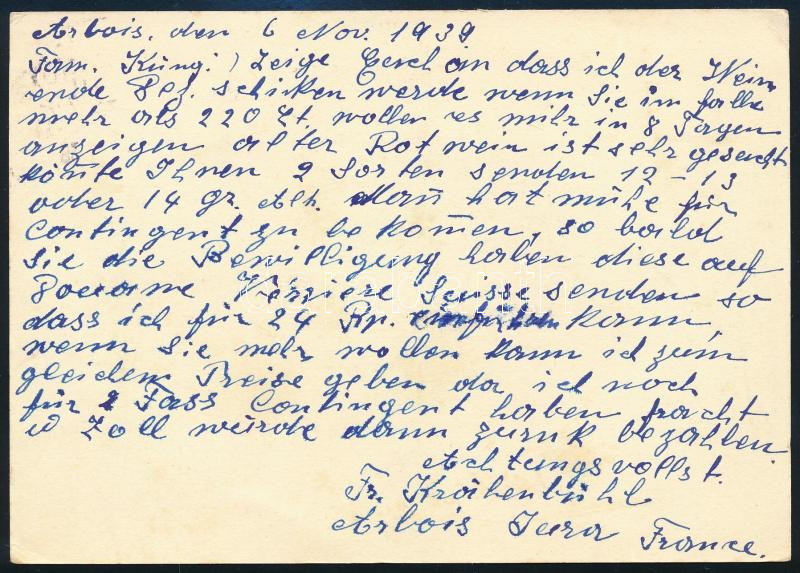 Arbois, den 6 Nov. 1939
Fam. Küng! Zeige Euch an dass ich der Wein
ende schicken werde wenn Sie im falle
mehr als 220 Lt. wollen es mihr in 8 Tagen
anzeigen alter Rotwein ist sehr gesucht
könte Ihnen 2 Sorten senden 12 – 13
oder 14 gr. Alh. Man hat mühe für
Contingent zu bekom̄en, so bald
Sie die Bewilligung haben diese auf
Verriere Suisse senden, so
dass ich für 24 Rp. einführen kann,
wenn Sie mehr wollen kann ich zum
gleichem Preise geben da ich noch
für 2 Fass Contingent haben fracht
u Zoll würde dann zuruk bezahlen.
Achtungsvollst.
Fr. Krähenbühl
Arbois Jura France.